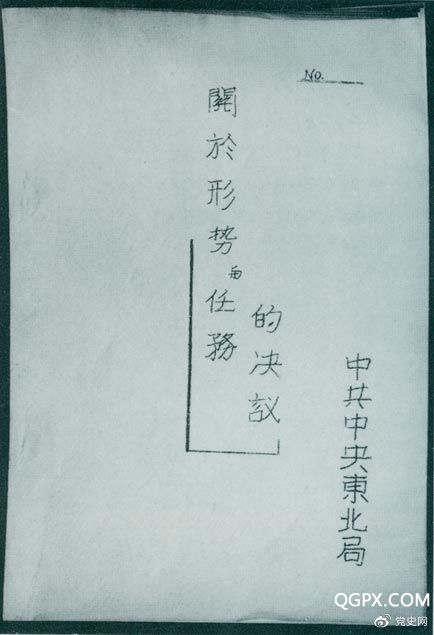 No.
關於形势与任務
的决議
中共中央東北局
QGPX.COM
党史网